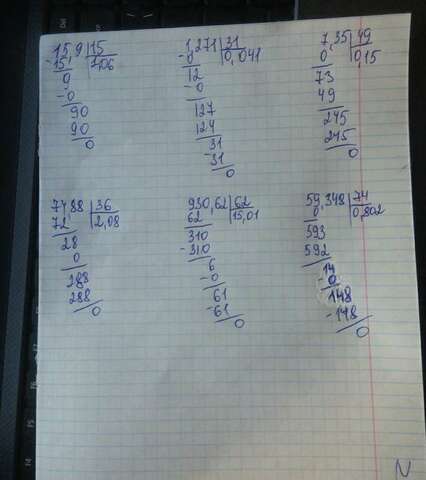 15,9 | 15
-15, | 1,06
0
-0
90
90
0
1,271 | 31
-0 | 0,041
12
-0
127
124
-31
31
0
7,35 | 49
0 | 0,15
73
49
245
245
0
74,88 | 36
72 | 2,08
28
0
288
288
0
930,62 | 62
62 | 15,01
310
-310
6
-0
61
-61
0
59,348 | 74
0 | 0,802
593
592
14
-0
148
-148
0
N